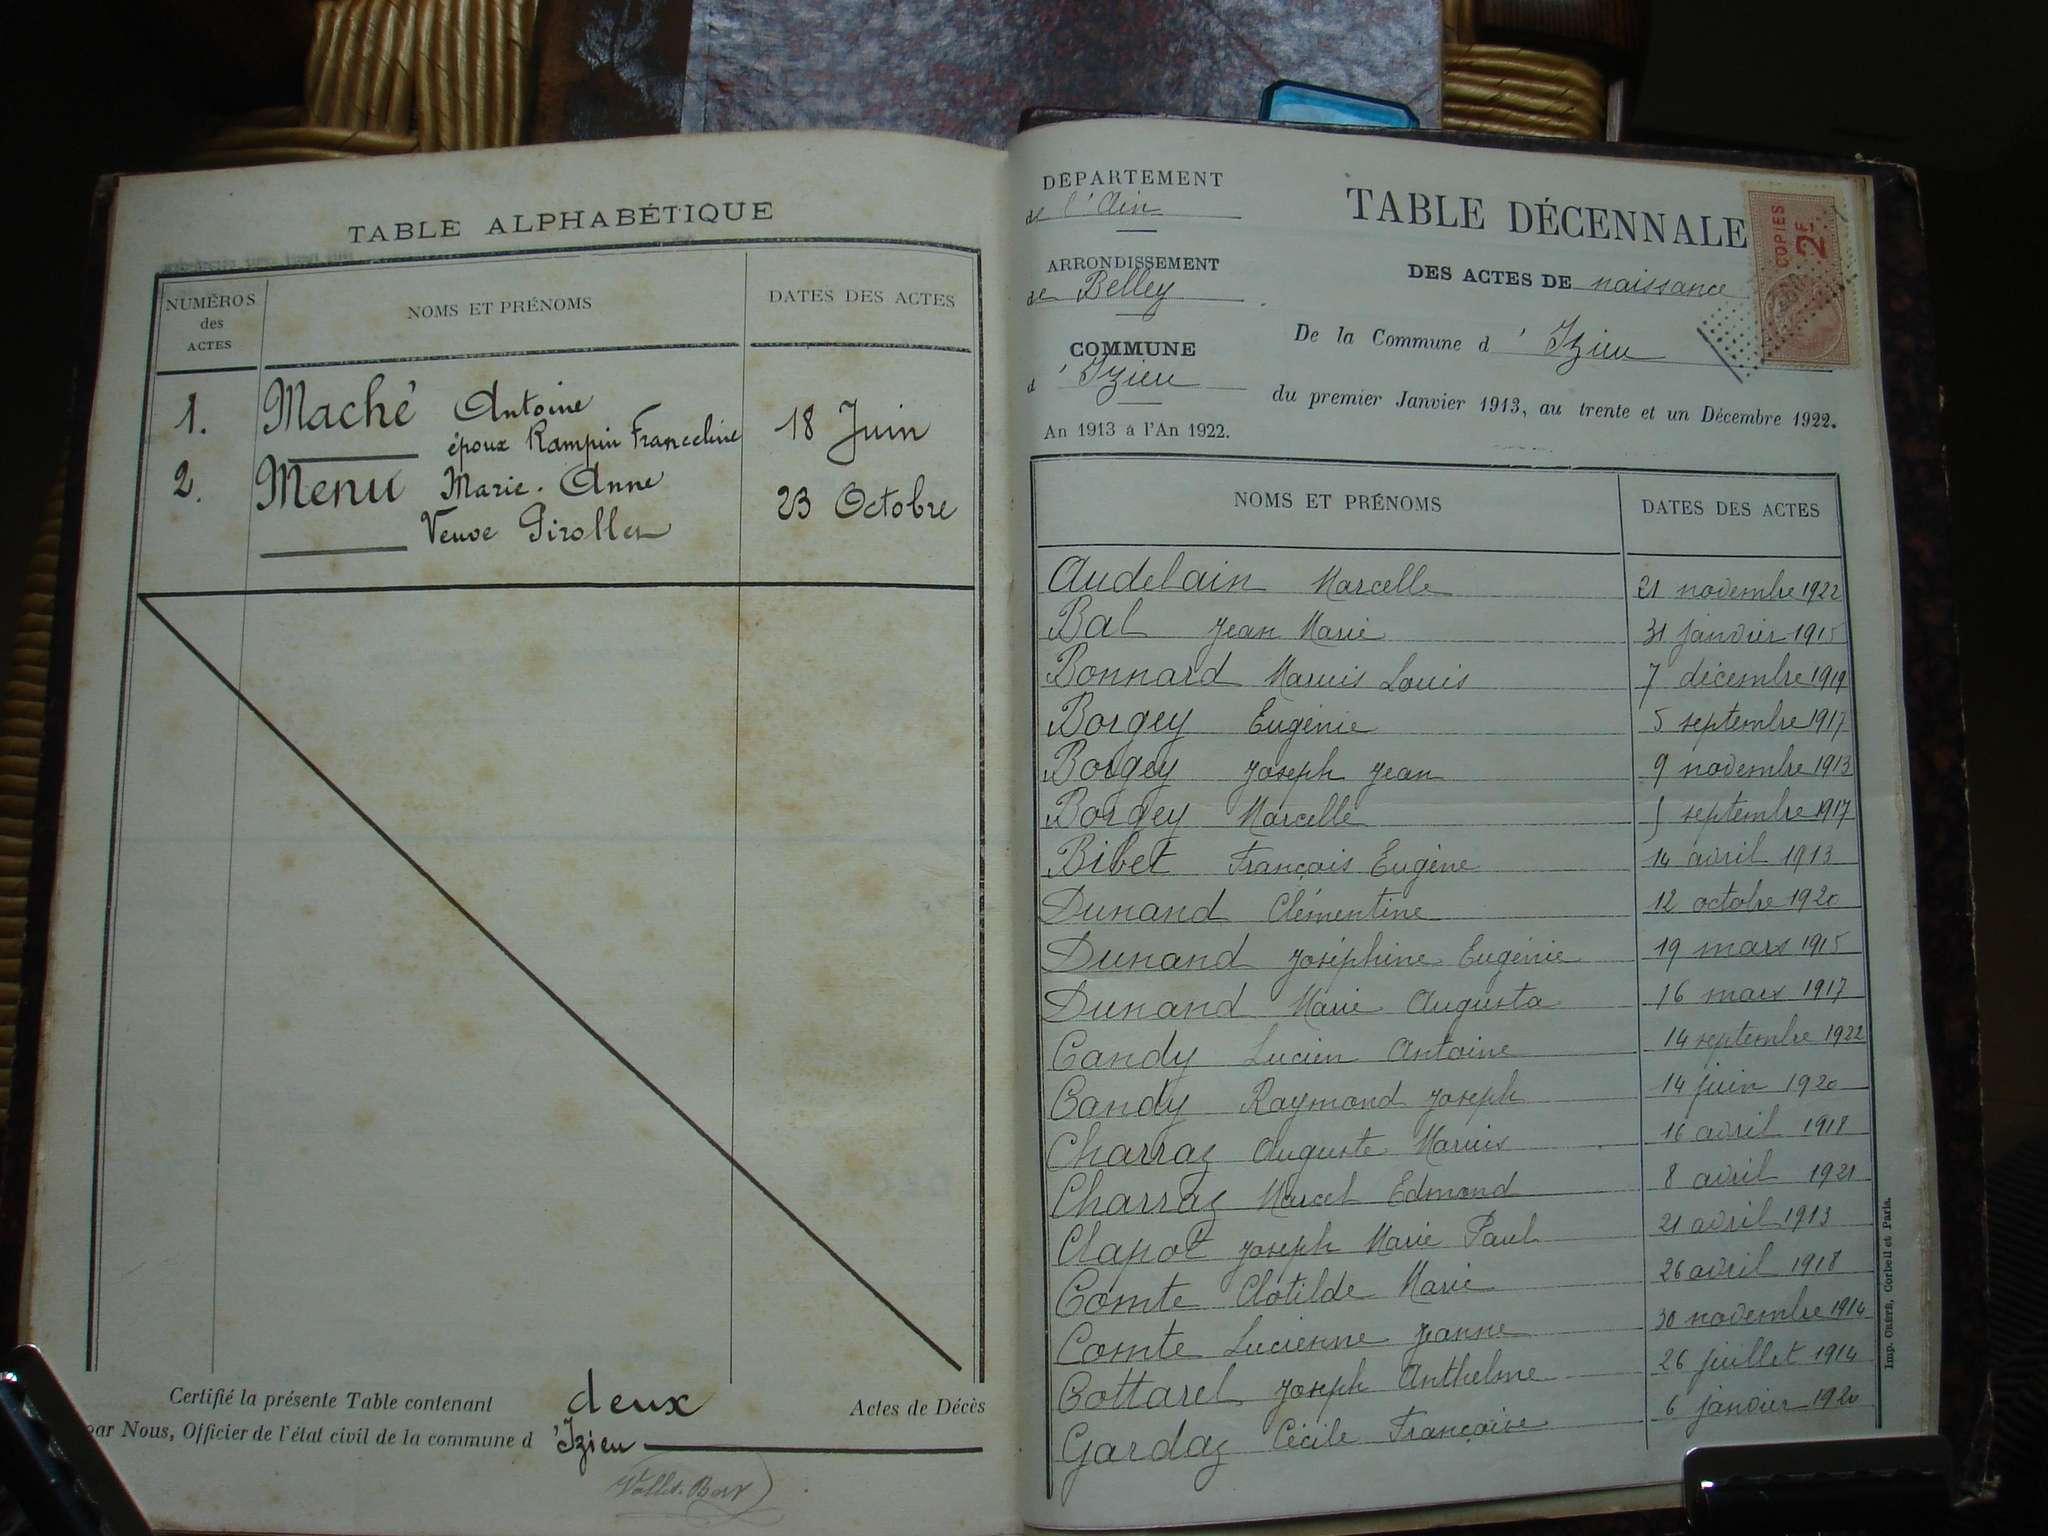 TABLE ALPHABÉTIQUE
NUMÉROS des ACTES NOMS ET PRÉNOMS DATES DES ACTES
1. Maché Antoine 18 Juin
époux Rampin Franceline
2. Menu Marie-Anne 23 Octobre
Veuve Girollet
Certifié la présente Table contenant deux Actes de Décès
par Nous, Officier de l'état civil de la commune d'Izieu
DÉPARTEMENT
de l'Ain
ARRONDISSEMENT
de Belley
COMMUNE
d'Izieu
An 1913 à l'An 1922.
TABLE DÉCENNALE
COPIES
2F
DES ACTES DE naissance
De la Commune d'Izieu
du premier Janvier 1913, au trente et un Décembre 1922.
NOMS ET PRÉNOMS DATES DES ACTES
Audelain Marcelle 21 novembre 1922
Bal Jean Marie 31 janvier 1915
Bonnard Marius Louis 7 décembre 1919
Borgey Eugénie 5 septembre 1917
Borgey Joseph Jean 9 novembre 1913
Borgey Marcelle 5 septembre 1917
Bibet François Eugène 14 avril 1913
Dunand Clémentine 12 octobre 1920
Dunand Joséphine Eugénie 19 mars 1915
Dunand Marie Augusta 16 mars 1917
Candy Lucien Antoine 14 septembre 1922
Candy Raymond Joseph 14 juin 1920
Charraz Auguste Marius 16 avril 1918
Charraz Marcel Edmond 8 avril 1921
Clapot Joseph Marie Paul 21 avril 1913
Comte Clotilde Marie 26 avril 1918
Comte Lucienne Jeanne 30 novembre 1914
Cottarel Joseph Anthelme 26 juillet 1914
Gardaz Cécile Françoise 6 janvier 1920
Imp. CRÉTÉ, Corbeil et Paris.